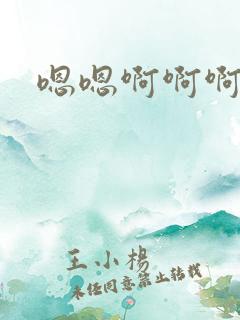 嗯嗯啊啊啊
王小杨
未经同意禁止转载